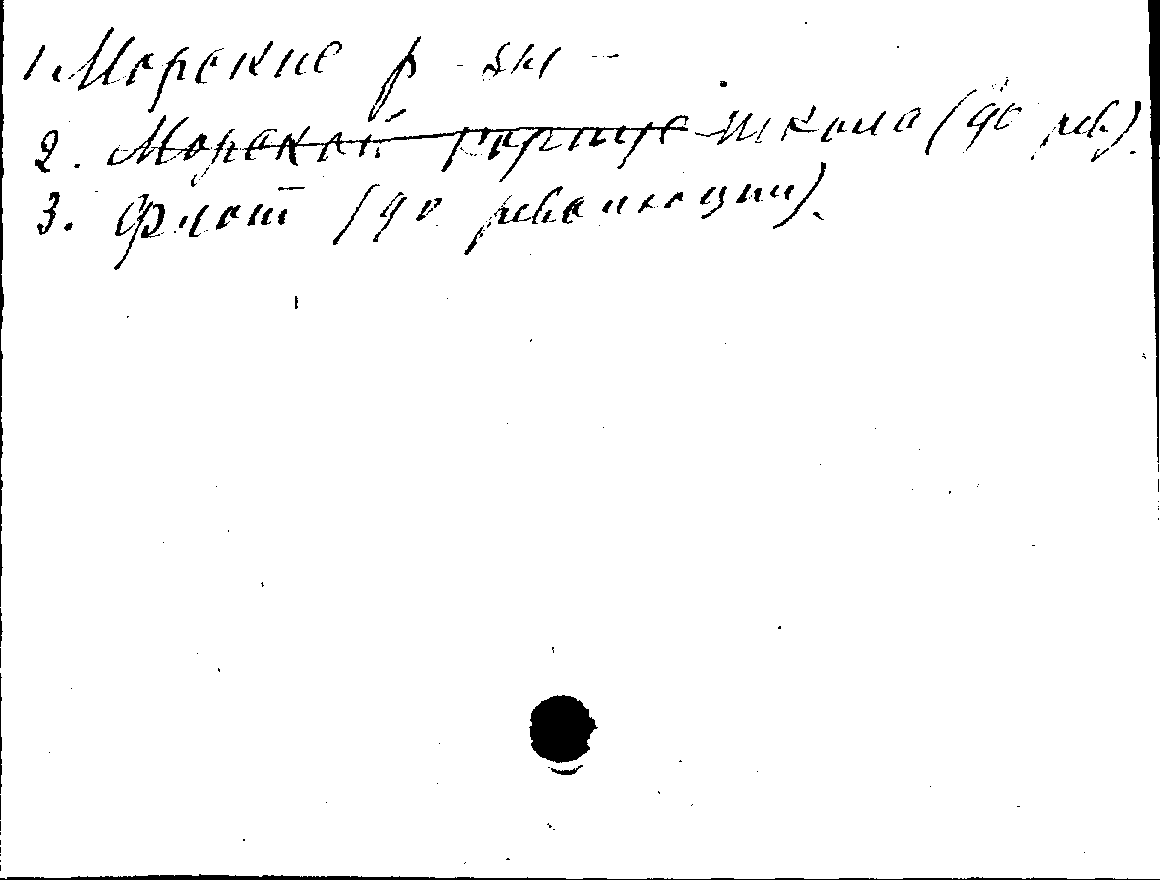 1. Морские р-зы -
2. Морской корпус школа (до рев).
3. Флот (до революции).